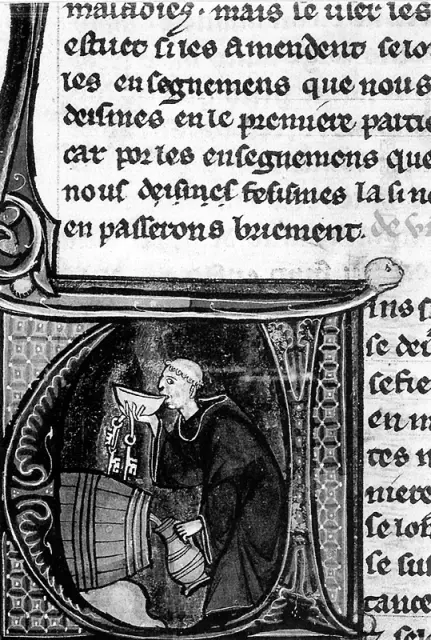 maladies. mais se user les
estuet si les amendent selo
les ensegnemens que nous
desimes en le premiere partie
car por les ensegnemens que
nous deismes fesismes la
en passerons briement. de vi
ins s
se dei
se fie
en m
tes n
niere
se lob
se sus
tance